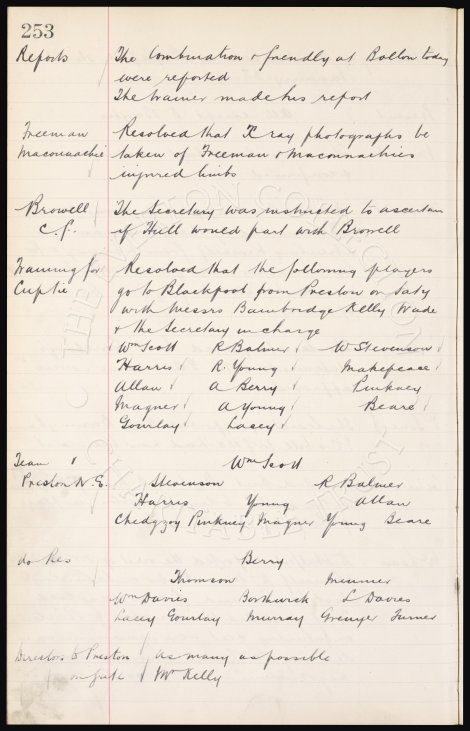 253
Reports The Combination & friendly at Bolton today
were reported
The trainer made his report
Freeman Resolved that X ray photographs be
Maconnachie taken of Freeman & Maconnachies
injured limbs
Browell The Secretary was instructed to ascertain
C.F. if Hull would part with Browell
Training for Resolved that the following players
Cuptie go to Blackpool from Preston on Saty
with Messrs Bainbridge Kelly Wade
& the Secretary in charge
Wm Scott R Balmer W Stevenson
Harris R. Young Makepeace
Allan A Berry Pinkney
Magner A Young Beare
Gourlay Lacey
Team v Wm Scott
Preston N.E. Stevenson R Balmer
Harris Young Allan
Chedgzoy Pinkney Magner Young Beare
do Res Berry
Thomson Meunier
Wm Davies Borthwick L Davies
Lacey Gourlay Murray Grenyer Turner
Directors to Preston as many as possible
on gate Mr Kelly